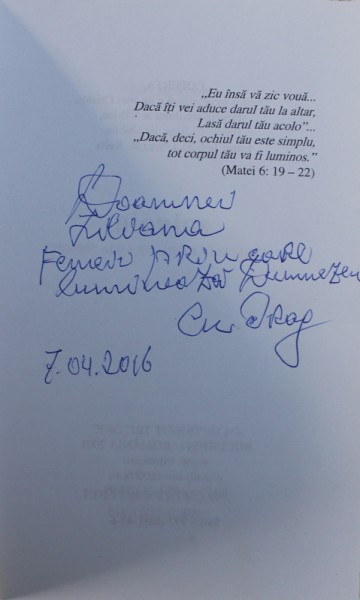 „Eu însă vă zic vouă...
Dacă îți vei aduce darul tău la altar,
Lasă darul tău acolo”...
„Dacă, deci, ochiul tău este simplu,
tot corpul tău va fi luminos.”
(Matei 6: 19 – 22)
Doamnei
Silvana
Femeia prin care
luminează Dumnezeu
Cu Drag
7.04.2016